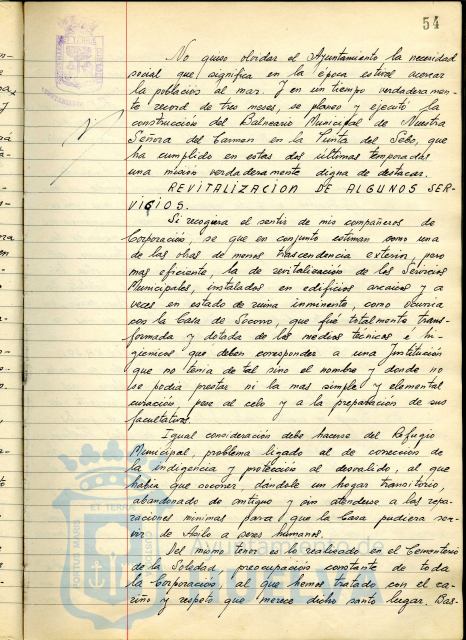 54
No quiso olvidar el Ayuntamiento la necesidad
social que significa en la época estival acercar
la población al mar. Y en un tiempo verdaderamen-
te record de tres meses, se planeó y ejecutó la
construcción del Balneario Municipal de Nuestra
Señora del Carmen en la Punta del Sebo, que
ha cumplido en estas dos últimas temporadas
una misión verdaderamente digna de destacar.
REVITALIZACION DE ALGUNOS SER-
VICIOS.
Si recogiera el sentir de mis compañeros de
Corporación se que en conjunto estiman como una
de las obras de menos trascendencia exterior, pero
mas eficiente, la de revitalización de los Servicios
Municipales, instalados en edificios arcaicos y a
veces en estado de ruina inminente, como ocurria
con la Casa de Socorro, que fué totalmente trans-
formada y dotada de los medios técnicos é hi-
gienicos que deben corresponder a una Institución
que no tenia de tal sino el nombre y donde no
se podia prestar ni la mas simple y elemental
curación, pese al celo y a la preparación de sus
facultativos.
Igual consideración debe hacerse del Refugio
Municipal, problema ligado al de corrección de
la indigencia y protección al desvalido, al que
habia que socorrer, dándole un hogar transitorio,
abandonado de antiguo y sin atenderse a las repa-
raciones minimas para que la Casa pudiera ser-
vir de Asilo a seres humanos.
Del mismo tenor es lo realizado en el Cementerio
de la Soledad, preocupación constante de toda
la Corporación, al que hemos tratado con el ca-
riño y respeto que merece dicho santo lugar. Bas-
Ayuntamiento de
HUELVA